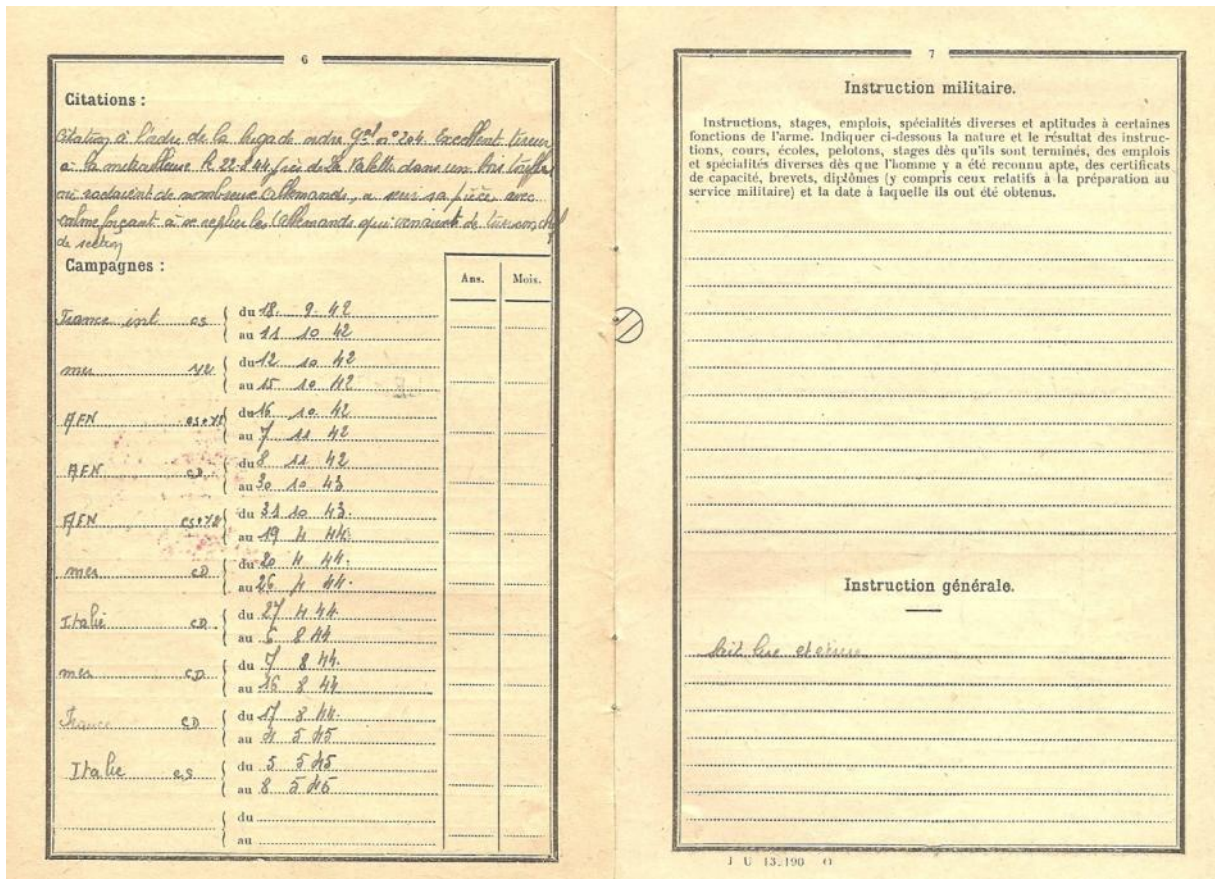 6
Citations :
Citation à l'ordre de la brigade ordre gal n° 204. Excellent tireur
à la mitrailleuse le 22-8-44, près de La Valette dans un bois touffu
où restaient de nombreux Allemands, a servi sa pièce avec
calme forçant à se replier les Allemands qui venaient de tuer son chef
de section
Campagnes :
Ans. Mois.
France int cs du 18. 9. 42
au 11 10 42
mer 1/2 du 12 10 42
au 15 10 42
AFN cs+1/2 du 16 10 42
au 7 11 42
AFN CD du 8 11 42
au 30 10 43
AFN cs+1/2 du 31 10 43.
au 19 4 44.
mer CD du 20 4 44
au 26 4 44.
Italie CD du 27 4 44.
au 6 8 44
mer CD du 7 8 44.
au 16 8 44
France CD du 17 8 44.
au 4 5 45
Italie cs du 5 5 45
au 8 5 45
du
au
7
Instruction militaire.
Instructions, stages, emplois, spécialités diverses et aptitudes à certaines
fonctions de l'arme. Indiquer ci-dessous la nature et le résultat des instruc-
tions, cours, écoles, pelotons, stages dès qu'ils sont terminés, des emplois
et spécialités diverses dès que l'homme y a été reconnu apte, des certificats
de capacité, brevets, diplômes (y compris ceux relatifs à la préparation au
service militaire) et la date à laquelle ils ont été obtenus.
Instruction générale.
Sait lire et écrire
J U 13.190 O